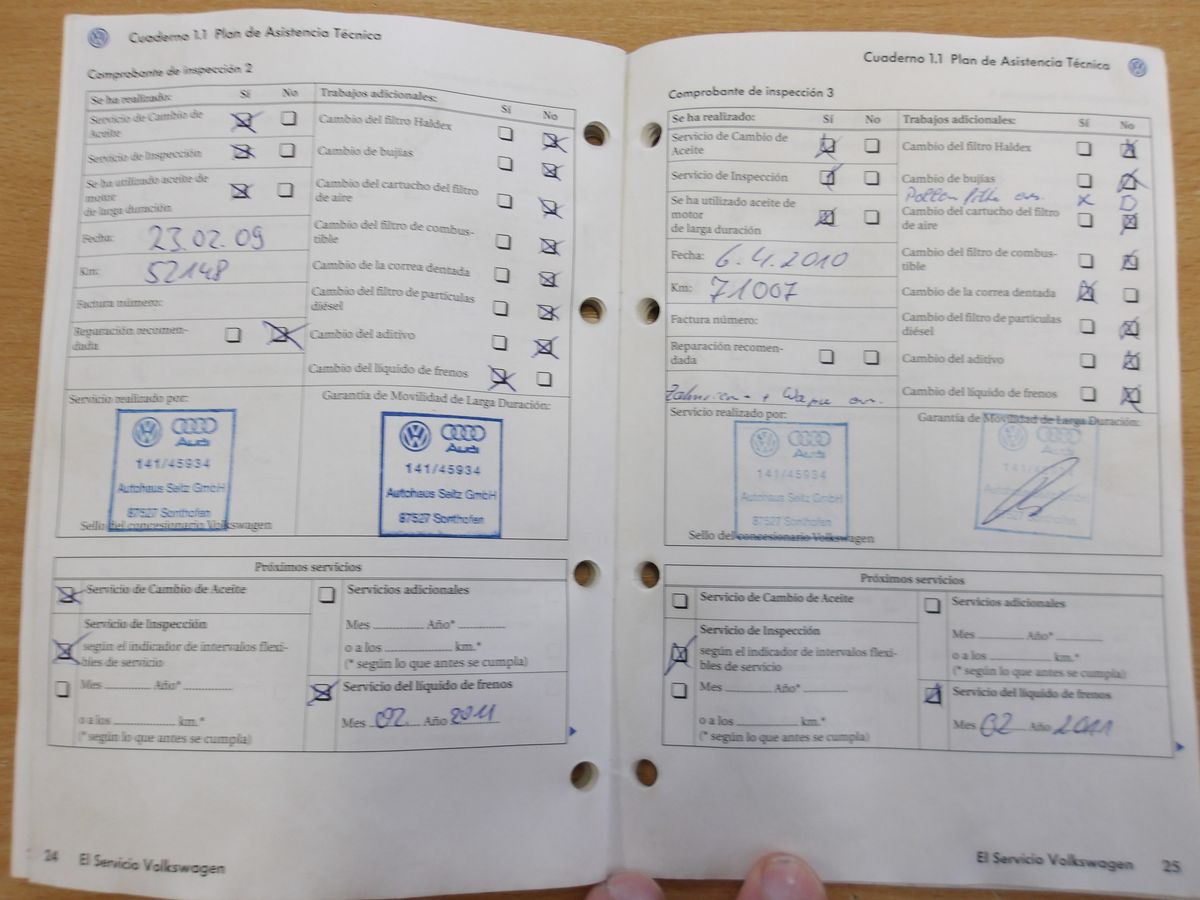 Cuaderno 1.1 Plan de Asistencia Técnica
Comprobante de inspección 2
Se ha realizado: Sí No
Servicio de Cambio de
Aceite
Servicio de Inspección
Se ha utilizado aceite de
motor
de larga duración
Fecha: 23.02.09
Km: 52148
Factura número:
Reparación recomen-
dada
Trabajos adicionales: Sí No
Cambio del filtro Haldex
Cambio de bujías
Cambio del cartucho del filtro
de aire
Cambio del filtro de combus-
tible
Cambio de la correa dentada
Cambio del filtro de partículas
diésel
Cambio del aditivo
Cambio del líquido de frenos
Servicio realizado por:
Audi
141/45934
Autohaus Seitz GmbH
87527 Sonthofen
Sello del concesionario Volkswagen
Garantía de Movilidad de Larga Duración:
Audi
141/45934
Autohaus Seitz GmbH
87527 Sonthofen
Próximos servicios
Servicio de Cambio de Aceite
Servicio de Inspección
según el indicador de intervalos flexi-
bles de servicio
Mes Año*
o a los km.*
(* según lo que antes se cumpla)
Servicios adicionales
Mes Año*
o a los km.*
(* según lo que antes se cumpla)
Servicio del líquido de frenos
Mes 02 Año 2011
24 El Servicio Volkswagen
Cuaderno 1.1 Plan de Asistencia Técnica
Comprobante de inspección 3
Se ha realizado: Sí No
Servicio de Cambio de
Aceite
Servicio de Inspección
Se ha utilizado aceite de
motor
de larga duración
Fecha: 6.4.2010
Km: 71007
Factura número:
Reparación recomen-
dada
Trabajos adicionales: Sí No
Cambio del filtro Haldex
Cambio de bujías
Cambio del cartucho del filtro
de aire
Cambio del filtro de combus-
tible
Cambio de la correa dentada
Cambio del filtro de partículas
diésel
Cambio del aditivo
Cambio del líquido de frenos
Servicio realizado por:
Audi
141/45934
Autohaus Seitz GmbH
87527 Sonthofen
Sello del concesionario Volkswagen
Garantía de Movilidad de Larga Duración:
Audi
Próximos servicios
Servicio de Cambio de Aceite
Servicio de Inspección
según el indicador de intervalos flexi-
bles de servicio
Mes Año*
o a los km.*
(* según lo que antes se cumpla)
Servicios adicionales
Mes Año*
o a los km.*
(* según lo que antes se cumpla)
Servicio del líquido de frenos
Mes 02 Año 2011
El Servicio Volkswagen 25